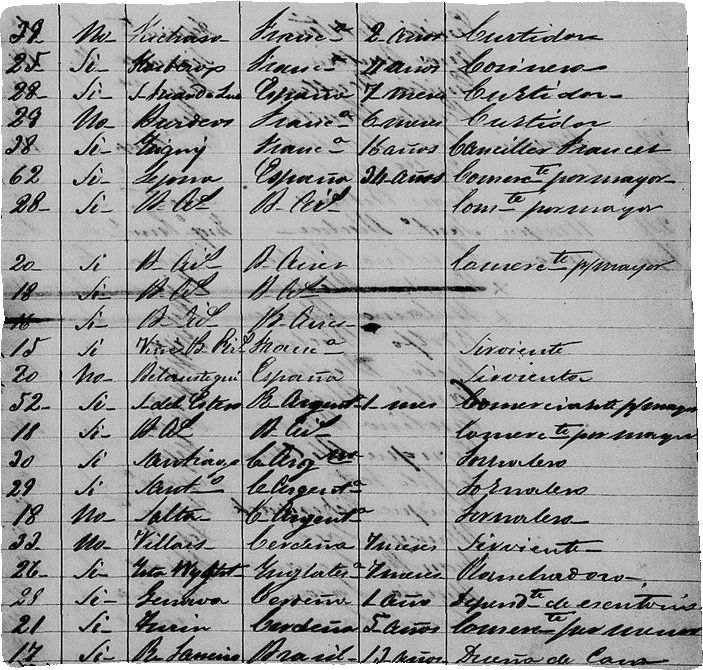 39 No Franc.a 2 años Curtidor
25 Si Franc.a 4 años Cosinero
28 Si S. Juan de Luz España 7 meses Curtidor
29 No Burdeos Franc.a 6 meses Curtidor
38 Si Franc.a 16 años Canciller Frances
62 Si España 34 años Comerc.te por mayor
28 Si B. Ai.s B. Ai.s Com.te por mayor
20 Si B. Ai.s B. Aires Comerc.te p/mayor
18 Si B. As B. As
16 Si B. Ai.s B. Aires
15 Si Franc.a Sirviente
20 No España Sirvienta
52 Si S. del Estero R. Argent. 1 mes Comerciante p/mayor
18 Si B. As B. Ai.s Comerc.te por mayor
30 Si Santiago C. Arg.na Jornalero
29 Si Sant.o C. Argent.a Jornalero
18 No Salta C. Argent.a Jornalero
33 No Cerdeña 7 meses Sirviente
26 Si Inglater.a 7 meses Planchadora
28 Si Genova Cerdeña 1 año Depend.te de escritorio
21 Si Turin Cerdeña 5 años Comerc.te por menor
17 Si R. Janeiro Brasil 13 años Dueña de Casa